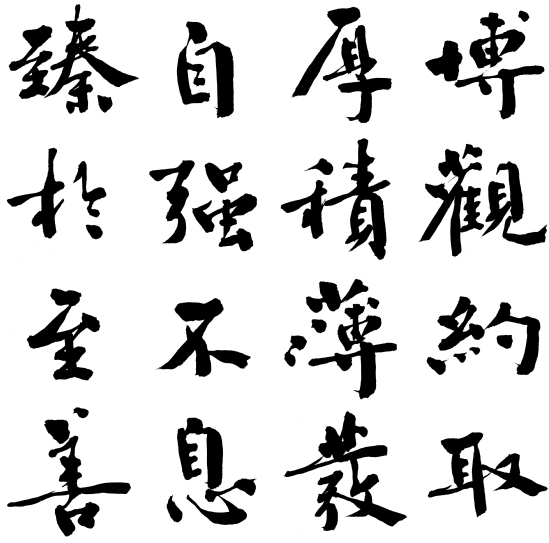 博觀約取
厚積薄發
自强不息
臻於至善